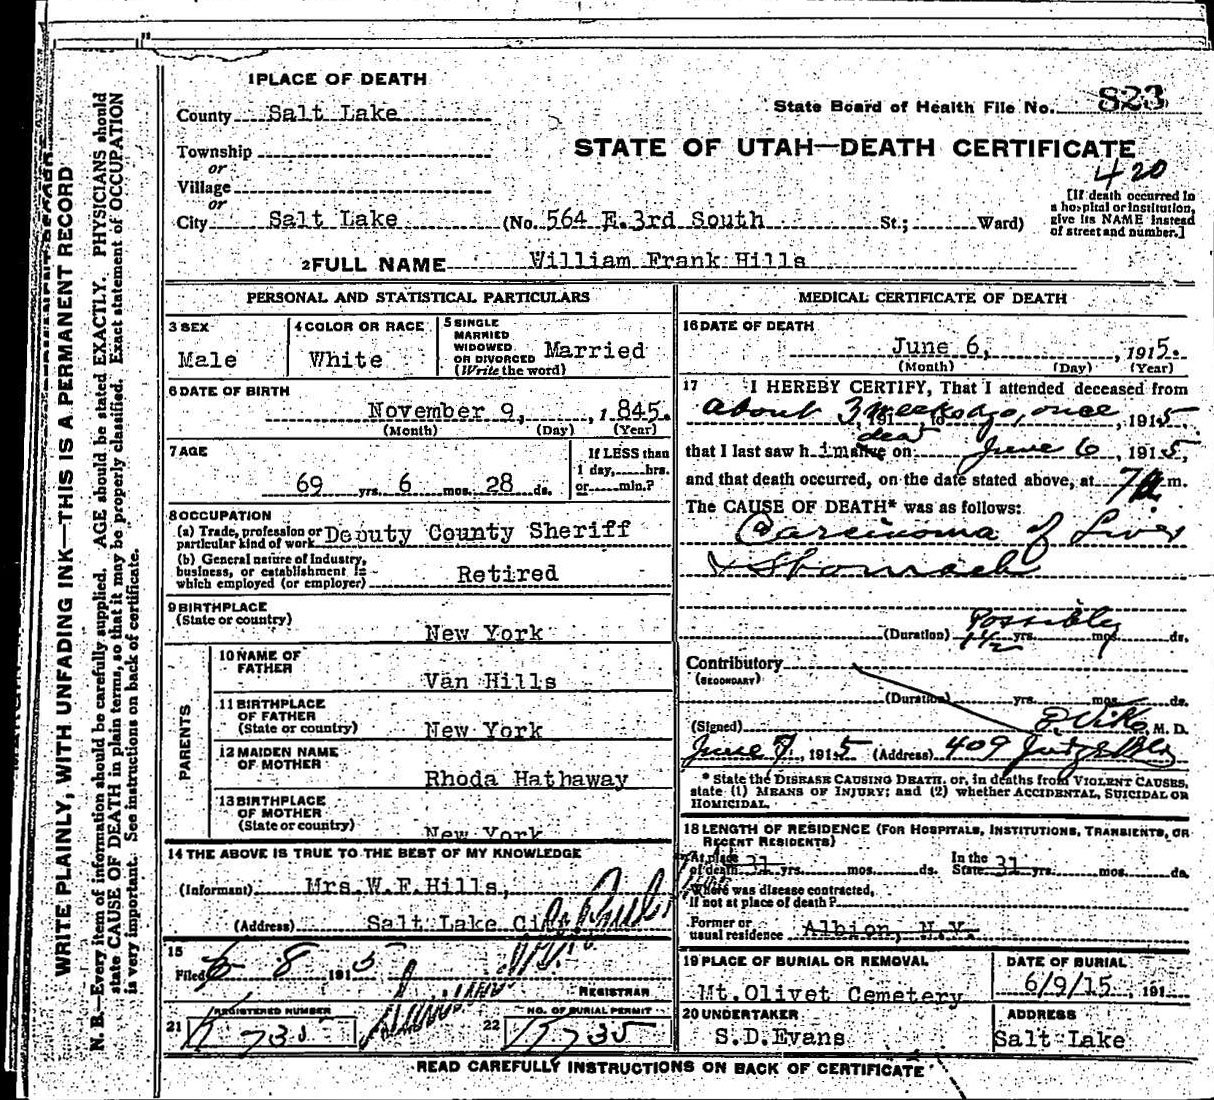 1 PLACE OF DEATH
County Salt Lake
State Board of Health File No. 823
Township
or
STATE OF UTAH—DEATH CERTIFICATE
420
Village
or
City Salt Lake (No. 564 E. 3rd South St.; Ward)
[If death occurred in
a hospital or institution,
give its NAME instead
of street and number.]
2 FULL NAME William Frank Hills
PERSONAL AND STATISTICAL PARTICULARS
3 SEX
Male
4 COLOR OR RACE
White
5 SINGLE
MARRIED
WIDOWED
OR DIVORCED
(Write the word)
Married
6 DATE OF BIRTH
November 9, , 1 845.
(Month) (Day) (Year)
7 AGE
69 yrs. 6 mos. 28 ds.
If LESS than
1 day, hrs.
or min.?
8 OCCUPATION
(a) Trade, profession or
particular kind of work Deputy County Sheriff
(b) General nature of industry,
business, or establishment in
which employed (or employer) Retired
9 BIRTHPLACE
(State or country)
New York
PARENTS
10 NAME OF
FATHER
Van Hills
11 BIRTHPLACE
OF FATHER
(State or country) New York
12 MAIDEN NAME
OF MOTHER
Rhoda Hathaway
13 BIRTHPLACE
OF MOTHER
(State or country) New York
14 THE ABOVE IS TRUE TO THE BEST OF MY KNOWLEDGE
(Informant) Mrs. W. F. Hills,
(Address) Salt Lake City
15
Filed 6 8 1915
REGISTRAR
REGISTERED NUMBER
21 K 735
NO. OF BURIAL PERMIT
22 K 735
MEDICAL CERTIFICATE OF DEATH
16 DATE OF DEATH
June 6, , 1915.
(Month) (Day) (Year)
17 I HEREBY CERTIFY, That I attended deceased from
about 3 weeks ago, once, 191 , to , 1915
dead
that I last saw h im alive on June 6, 1915,
and that death occurred, on the date stated above, at 7 a. m.
The CAUSE OF DEATH* was as follows:
Carcinoma of Liver
& Stomach
Possibly
(Duration) 1 1/2 yrs. mos. ds.
Contributory
(SECONDARY)
(Duration) yrs. mos. ds.
(Signed) M. D.
June 7, 1915 (Address) 409 Judge Bld
* State the DISEASE CAUSING DEATH, or, in deaths from VIOLENT CAUSES,
state (1) MEANS OF INJURY; and (2) whether ACCIDENTAL, SUICIDAL OR
HOMICIDAL.
18 LENGTH OF RESIDENCE (FOR HOSPITALS, INSTITUTIONS, TRANSIENTS, OR
RECENT RESIDENTS)
At place
of death 31 yrs. mos. ds. In the
State 31 yrs. mos. ds.
Where was disease contracted,
if not at place of death?
Former or
usual residence Albion, N.Y.
19 PLACE OF BURIAL OR REMOVAL
Mt. Olivet Cemetery
DATE OF BURIAL
6/9/15 , 191
20 UNDERTAKER
S.D. Evans
ADDRESS
Salt Lake
READ CAREFULLY INSTRUCTIONS ON BACK OF CERTIFICATE
WRITE PLAINLY, WITH UNFADING INK—THIS IS A PERMANENT RECORD
N. B.—Every item of information should be carefully supplied. AGE should be stated EXACTLY. PHYSICIANS should
state CAUSE OF DEATH in plain terms, so that it may be properly classified. Exact statement of OCCUPATION
is very important. See instructions on back of certificate.